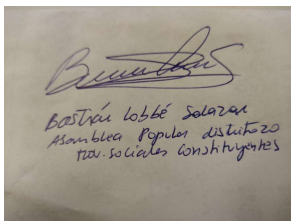 Bastián Lobbé Salazar
Asamblea Popular distrito 20
Mov. Sociales Constituyentes